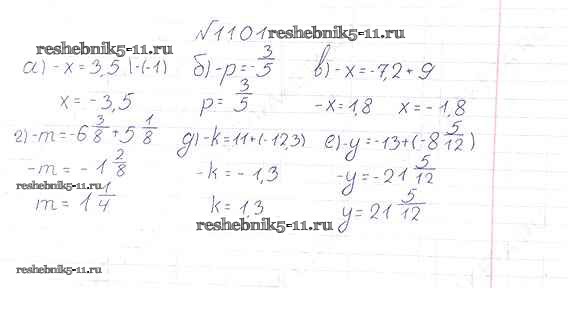 №1101
reshebnik5-11.ru reshebnik5-11.ru
а) -x = 3,5 |·(-1) б) -p = -3/5 в) -x = -7,2 + 9
x = -3,5 p = 3/5 -x = 1,8 x = -1,8
г) -m = -6 3/8 + 5 1/8 д) -k = 11 + (-12,3) е) -y = -13 + (-8 5/12)
-m = -1 2/8 -k = -1,3 -y = -21 5/12
reshebnik5-11.ru
m = 1 1/4 k = 1,3 y = 21 5/12
reshebnik5-11.ru
reshebnik5-11.ru